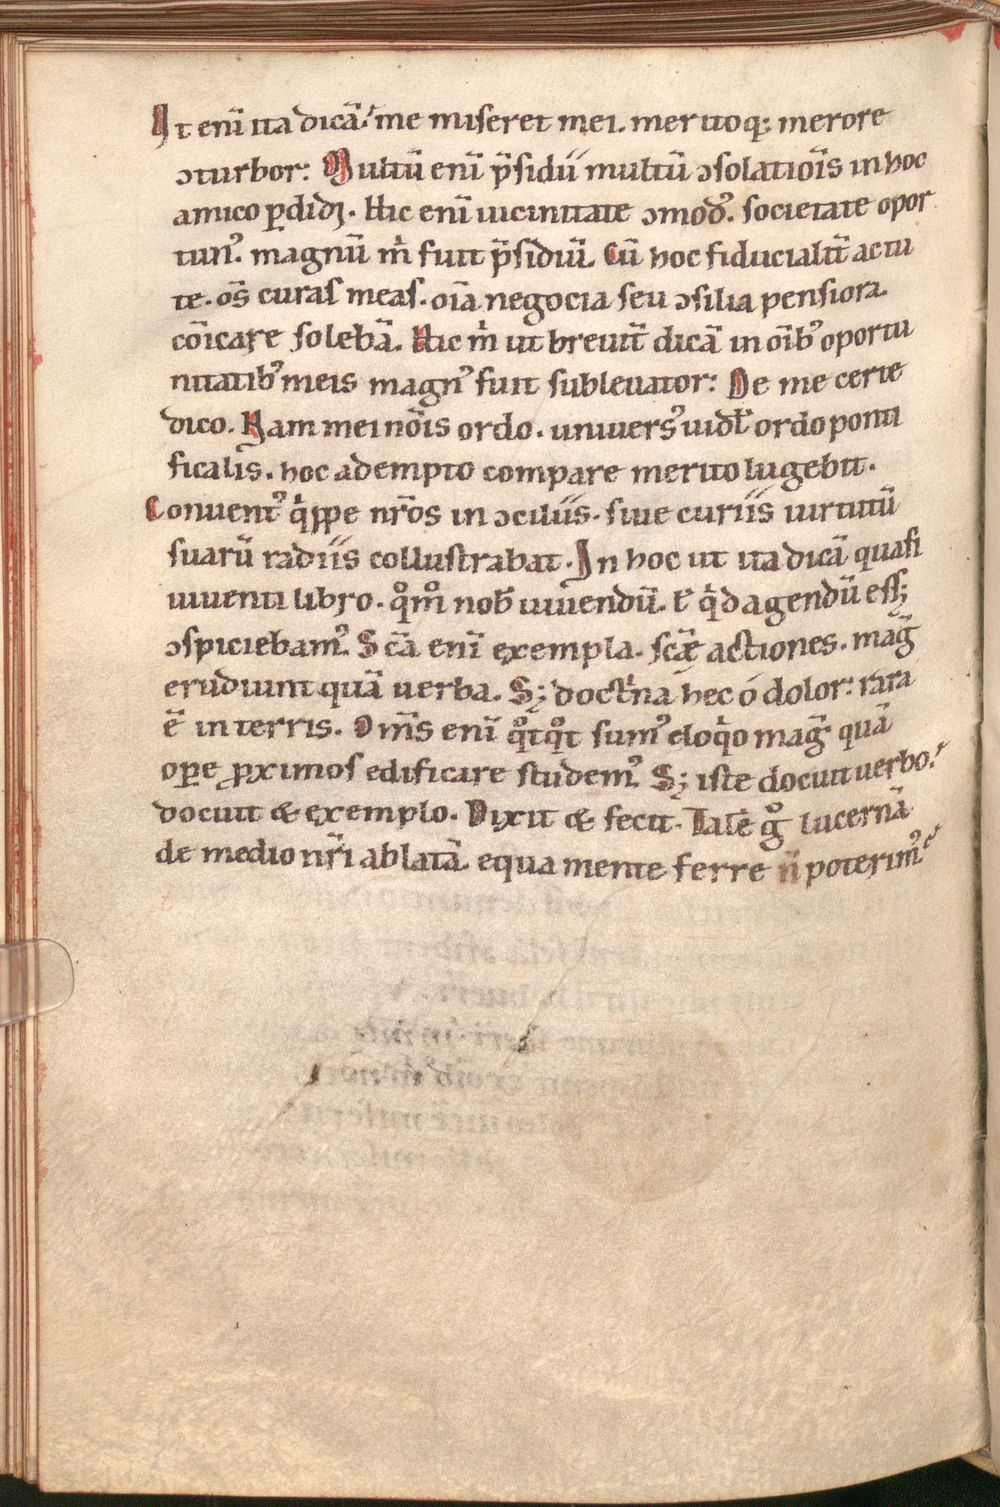 Vt eni̅ ita dica̅. me miseret mei. meritoq; merore
ꝯturbor: Multu̅ eni̅ p̅sidii multu̅ ꝯsolatio̅is in hoc
amico ꝑdidi. Hic eni̅ uicinitate ꝯmodꝰ. societate opor
tunꝰ. magnu̅ m̍ fuit p̅sidiu̅. Cu̅ hoc fiducialit̅ actu
te. os̅ curas meas. oi̅a negocia seu ꝯsilia pensiora
co̅icare soleba̅. Hic m̍ ut breuit̅ dica̅ in oi̅bꝰ oportu
nitatibꝰ meis magnꝰ fuit subleuator: De me certe
dico. Nam mei no̅is ordo. uniuersꝰ uidel̅ ordo ponti
ficalis. hoc adempto compare merito lugebit.
Conuentꝰ q̍ppe nr̅os in ꝯciliis. siue curiis uirtutu̅
suaru̅ radiis collustrabat. In hoc ut ita dica̅ quasi
uiuenti libro. qͦmͦ nob̅ uiuendu̅. ł q̍d agendu̅ ess;
ꝯspiciebamꝰ. Sc̅a eni̅ exempla. sc̅æ actiones. mag̅
erudiunt qua̅ uerba. S; doct̍na hec o dolor: rara
e̅ in terris. Om̅s eni̅ qͦtqͦt sumꝰ eloq̍o mag̅ qua̅
oꝑe ꝓximos edificare studemꝰ. S; iste docuit uerbo.
docuit & exemplo. Dixit & fecit. Tale̅ gͦ lucerna̅
de medio nr̅i ablata̅ equa mente ferre n̅ poterimꝰ.